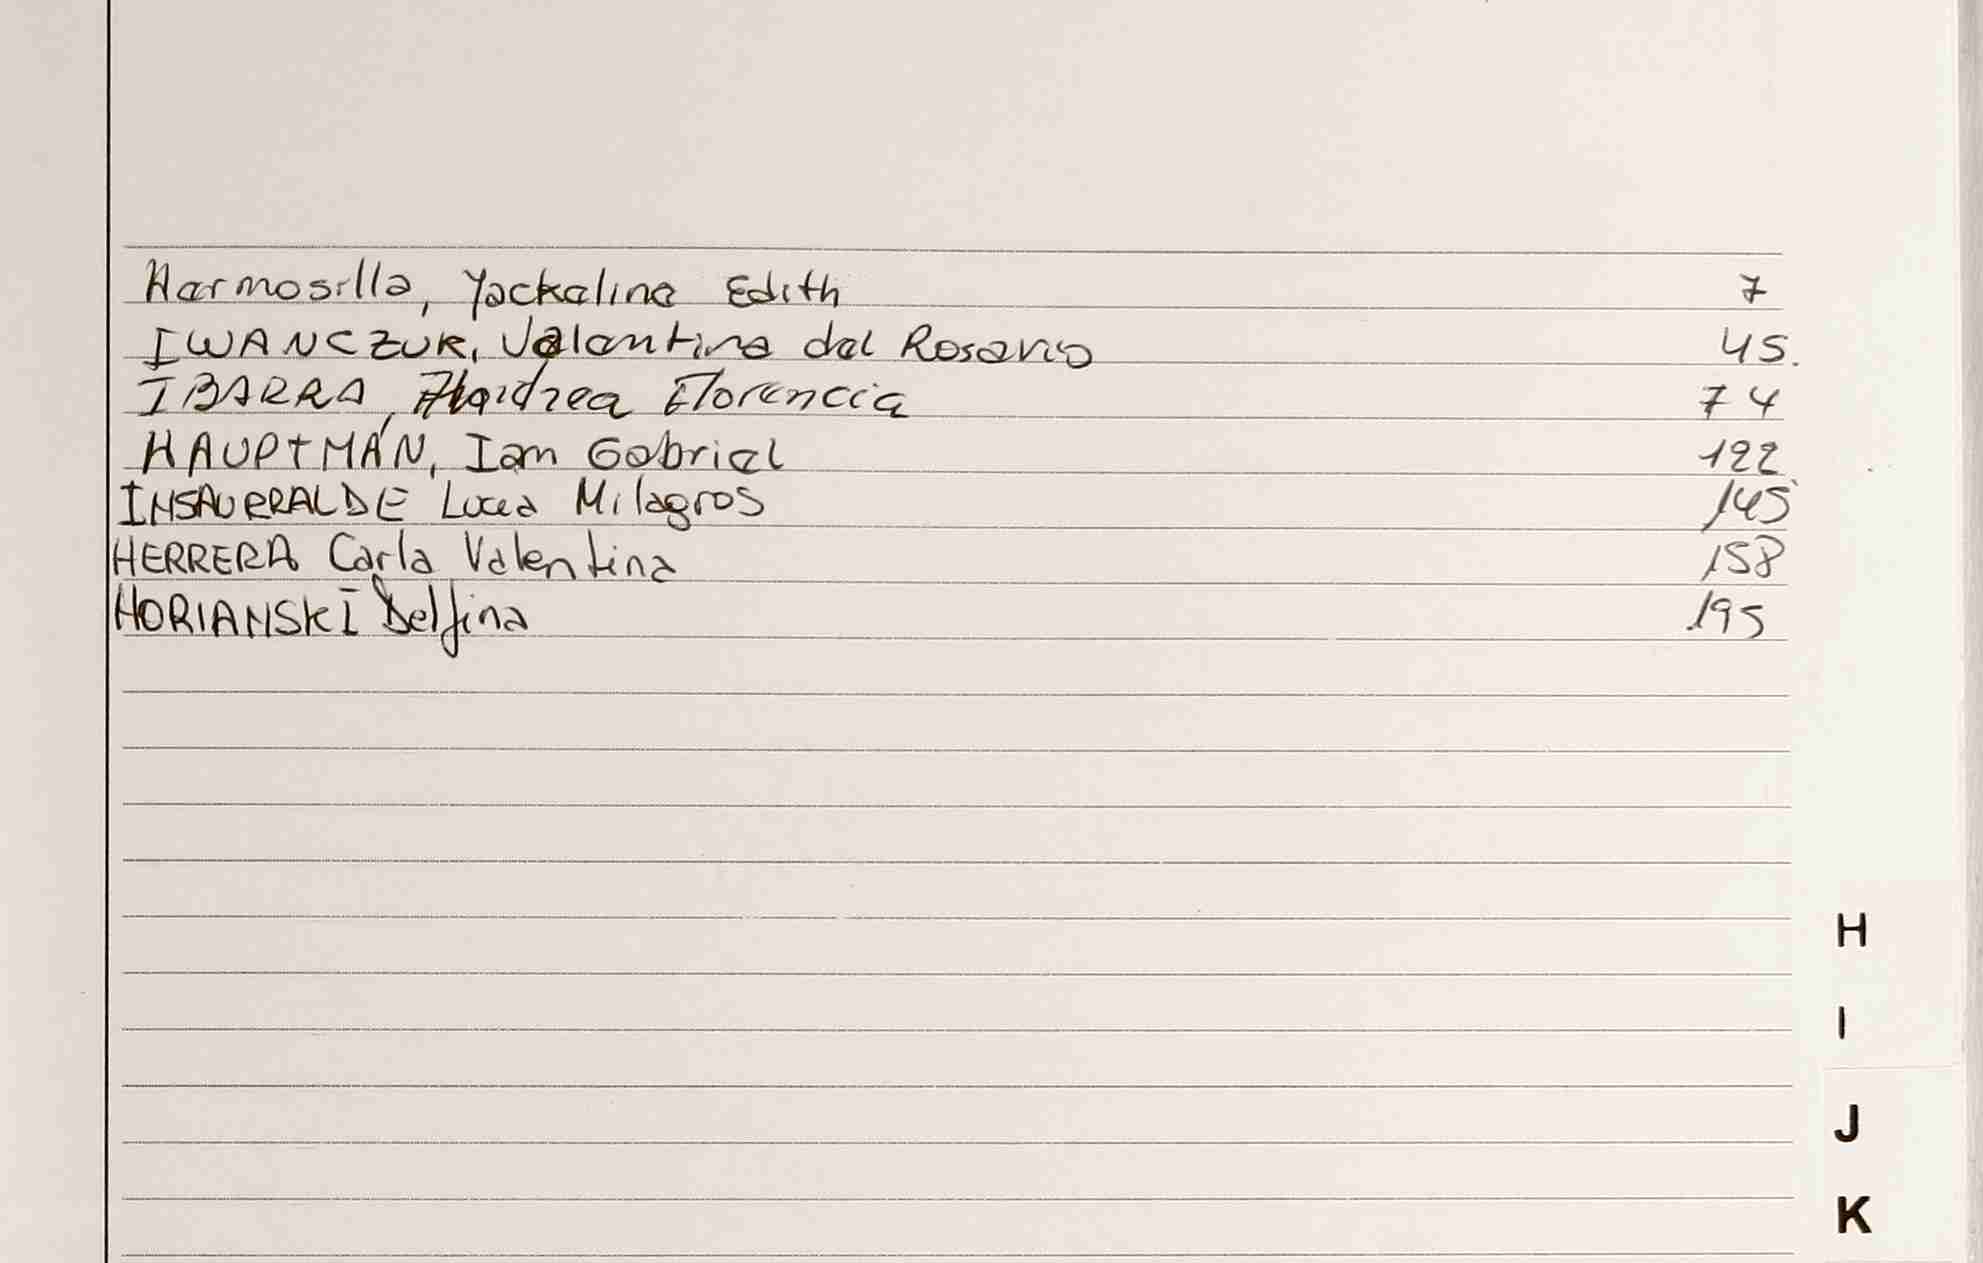 Hermosilla, Yackeline Edith 7
IWANCZUK, Valentina del Rosario 45.
IBARRA, Florencia 74
HAUPTMÁN, Iam Gabriel 122
INSAURRALDE Milagros 145
HERRERA Carla Valentina 158
HORIANSKI Delfina 195
H
I
J
K